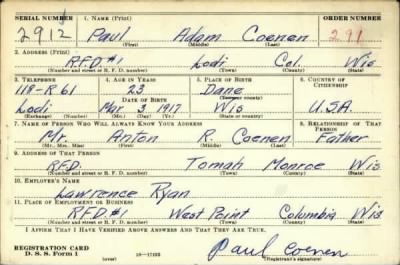 SERIAL NUMBER 1. NAME (Print) ORDER NUMBER
2912 Paul Adam Coenen 291
(First) (Middle) (Last)
2. ADDRESS (Print)
R.F.D. #1 Lodi Col. Wis
(Number and street or R. F. D. number) (Town) (County) (State)
3. TELEPHONE 4. AGE IN YEARS 5. PLACE OF BIRTH 6. COUNTRY OF CITIZENSHIP
118-R 61 23 Dane
DATE OF BIRTH (Town or county)
Lodi Mar 3, 1917 Wis U.S.A.
(Exchange) (Number) (Mo.) (Day) (Yr.) (State or country)
7. NAME OF PERSON WHO WILL ALWAYS KNOW YOUR ADDRESS 8. RELATIONSHIP OF THAT PERSON
Mr. Anton R. Coenen Father
(Mr., Mrs., Miss) (First) (Middle) (Last)
9. ADDRESS OF THAT PERSON
R.F.D. Tomah Monroe Wis
(Number and street or R. F. D. number) (Town) (County) (State)
10. EMPLOYER'S NAME
Lawrence Ryan
11. PLACE OF EMPLOYMENT OR BUSINESS
R.F.D #1 West Point Columbia Wis
(Number and street or R. F. D. number) (Town) (County) (State)
I AFFIRM THAT I HAVE VERIFIED ABOVE ANSWERS AND THAT THEY ARE TRUE.
REGISTRATION CARD
D. S. S. Form 1 (over) 16—17105 Paul Coenen
(Registrant's signature)